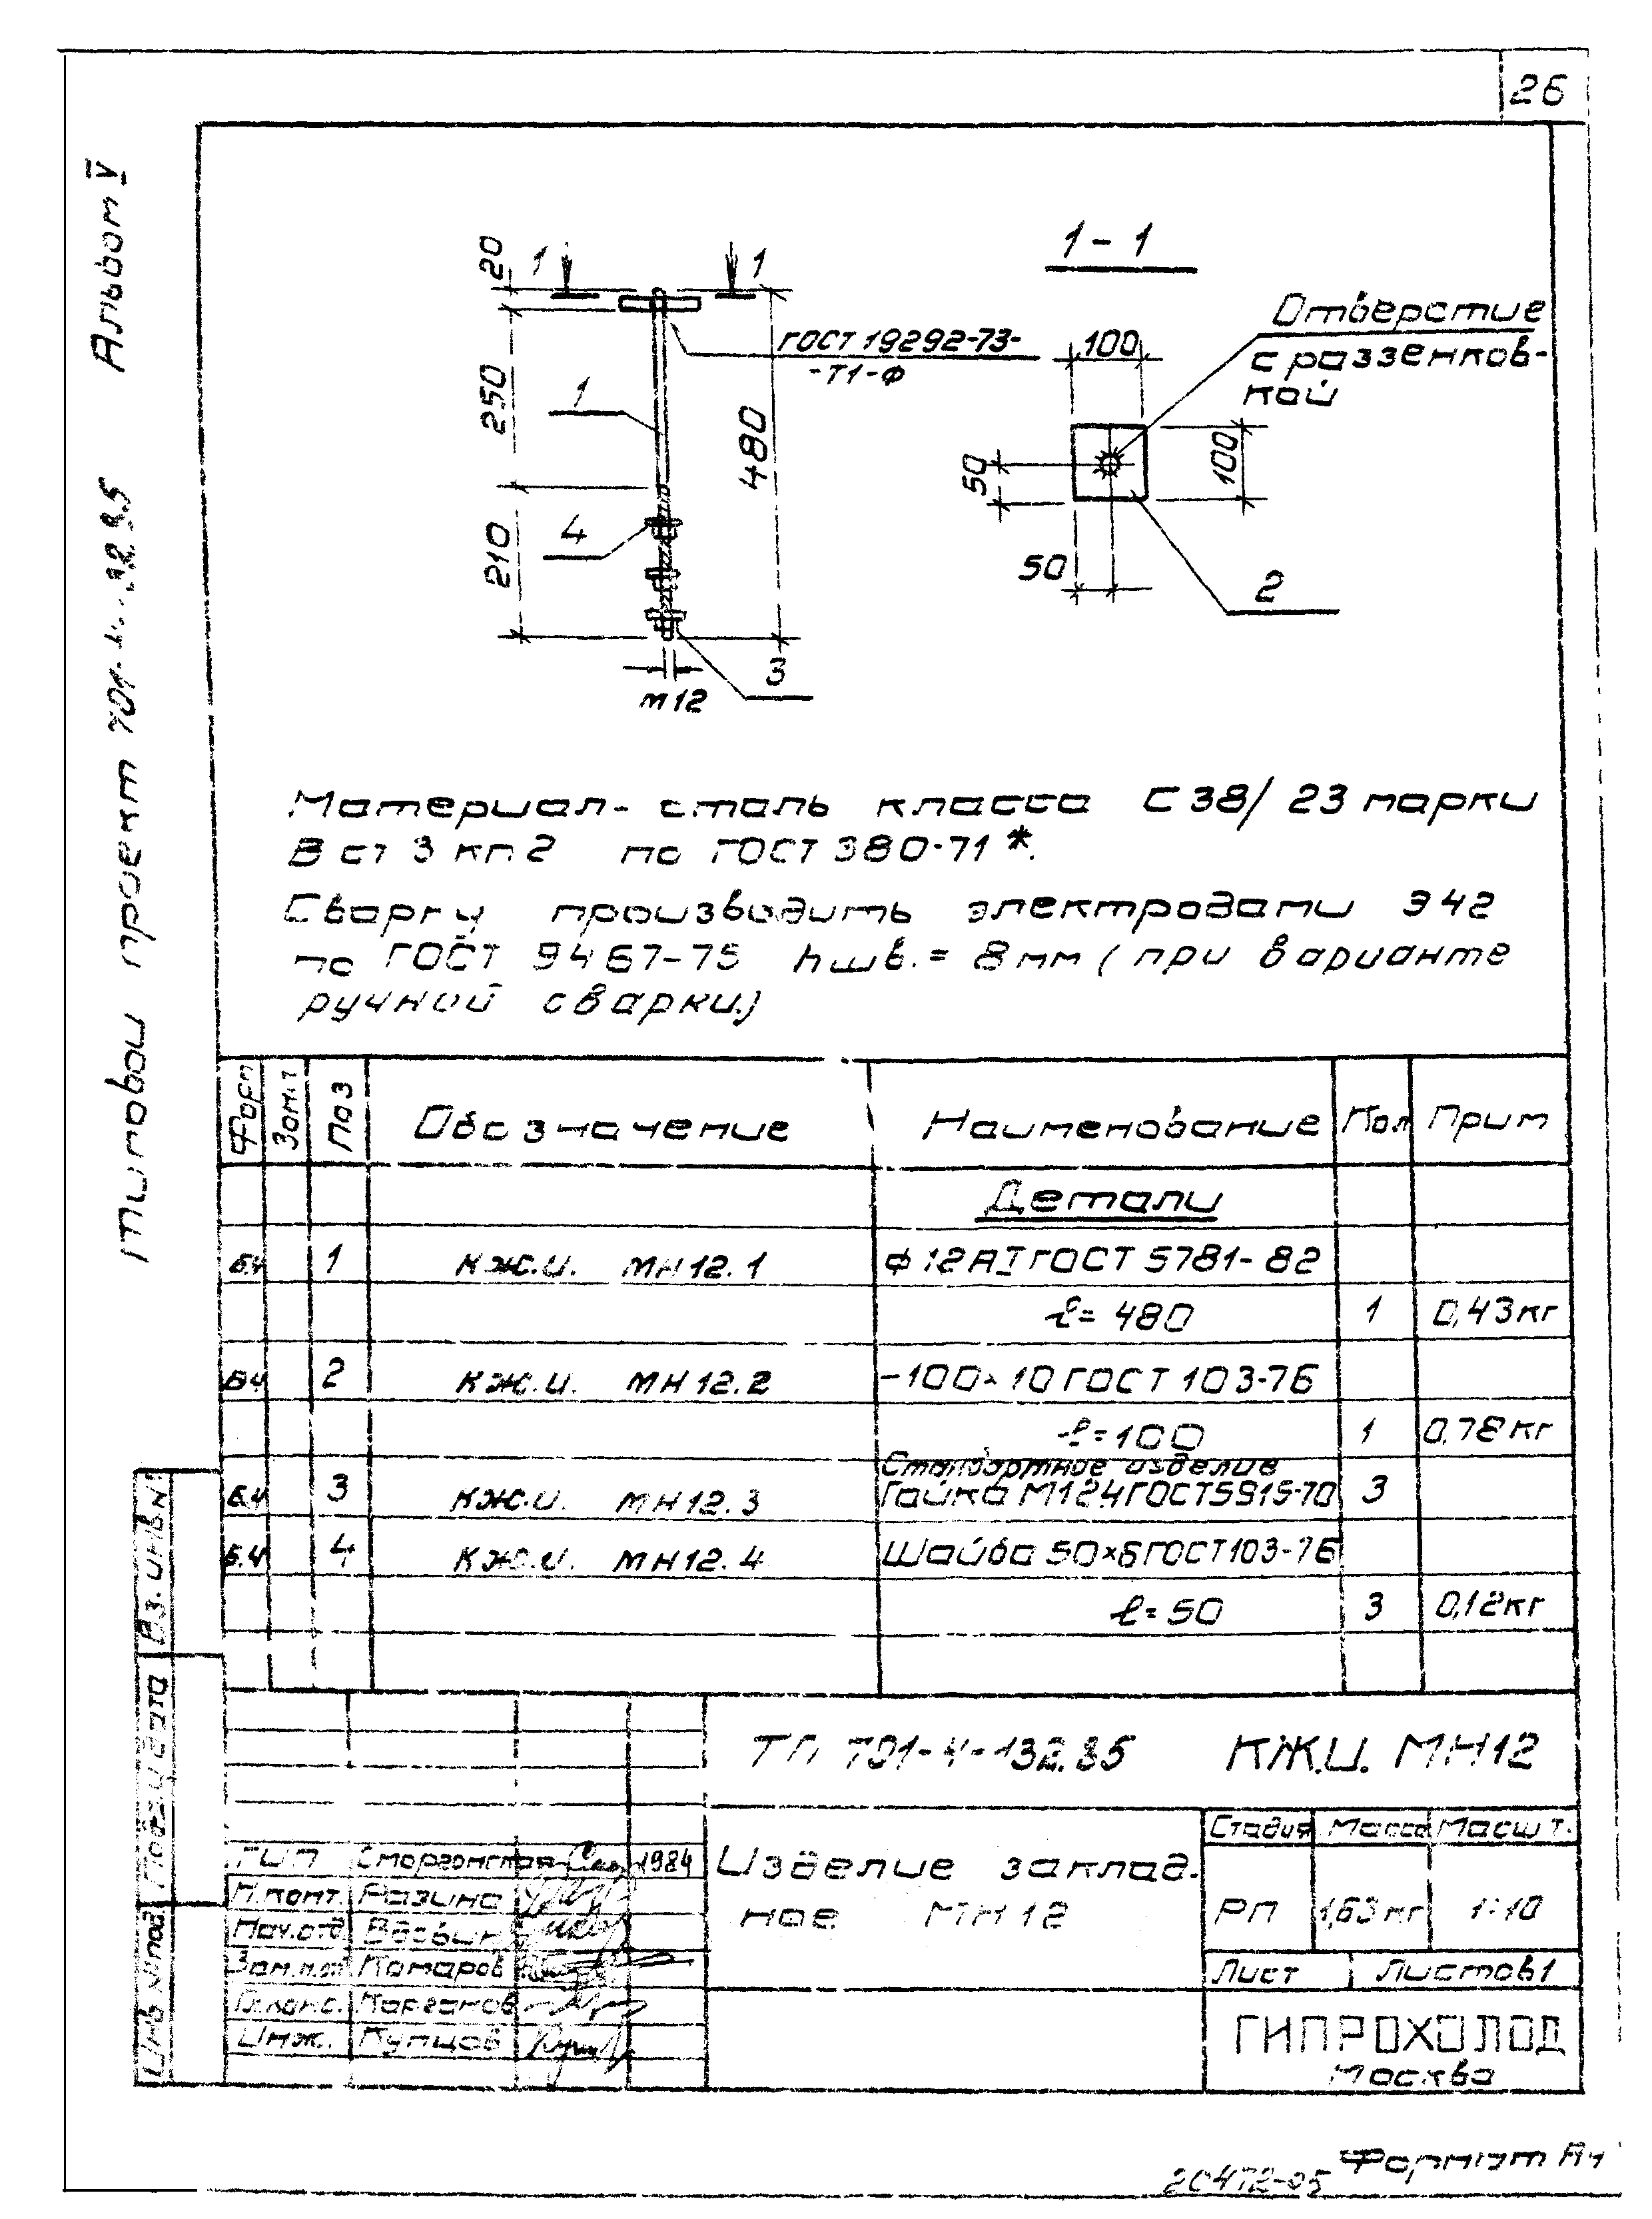 26
Альбом V
Типовой проект 701-4-132.85
1 1
20
250
210
480
1
4
3
М12
ГОСТ 19292-73-
-Т1-Ф
1-1
Отверстие
с раззенков-
кой
100
100
50
50
2
Материал- сталь класса С38/23 марки
В ст 3 кп 2 по ГОСТ 380-71*.
Сварку производить электродами Э42
по ГОСТ 9467-75 hшв.= 8мм (при варианте
ручной сварки.)
Форм Зон. Поз Обозначение Наименование Кол Прим
Детали
Б.Ч 1 КЖ.И. МН12.1 Ф12АI ГОСТ 5781-82
ℓ= 480 1 0,43кг
БЧ 2 КЖ.И. МН12.2 -100×10 ГОСТ 103-76
ℓ=100 1 0,78кг
Стандартное изделие
Б.Ч 3 КЖ.И. МН12.3 Гайка М12.4ГОСТ5915-70 3
Б.Ч 4 КЖ.И. МН12.4 Шайба 50×6ГОСТ103-76
ℓ=50 3 0,12кг
Вз. инв.№
Подп. и дата
Инв.№ под.
ТП 701-4-132.85 КЖ.И. МН12
ГИП Сморгонская 1984
Н.конт. Разина
Нач.отд
Зам.н.от Комаров
Гл.конс. Карганов
Инж. Купцов
Изделие заклад.
ное МН12
Стадия Масса Масшт.
РП 1,63кг 1:10
Лист Листов1
ГИПРОХОЛОД
Москва
20472-05 Формат А4